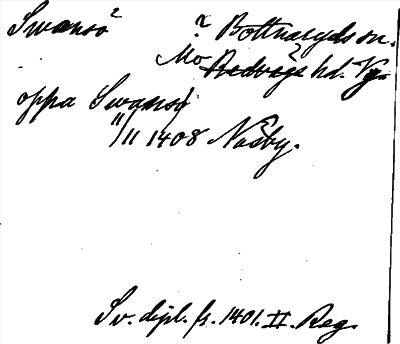 Swansö² ? Bottnaryds sn.
Mo Redvägs hd. Vg.
oppa Swansø
11/11 1408 Näsby.
Sv. dipl. fr. 1401. II. Reg.